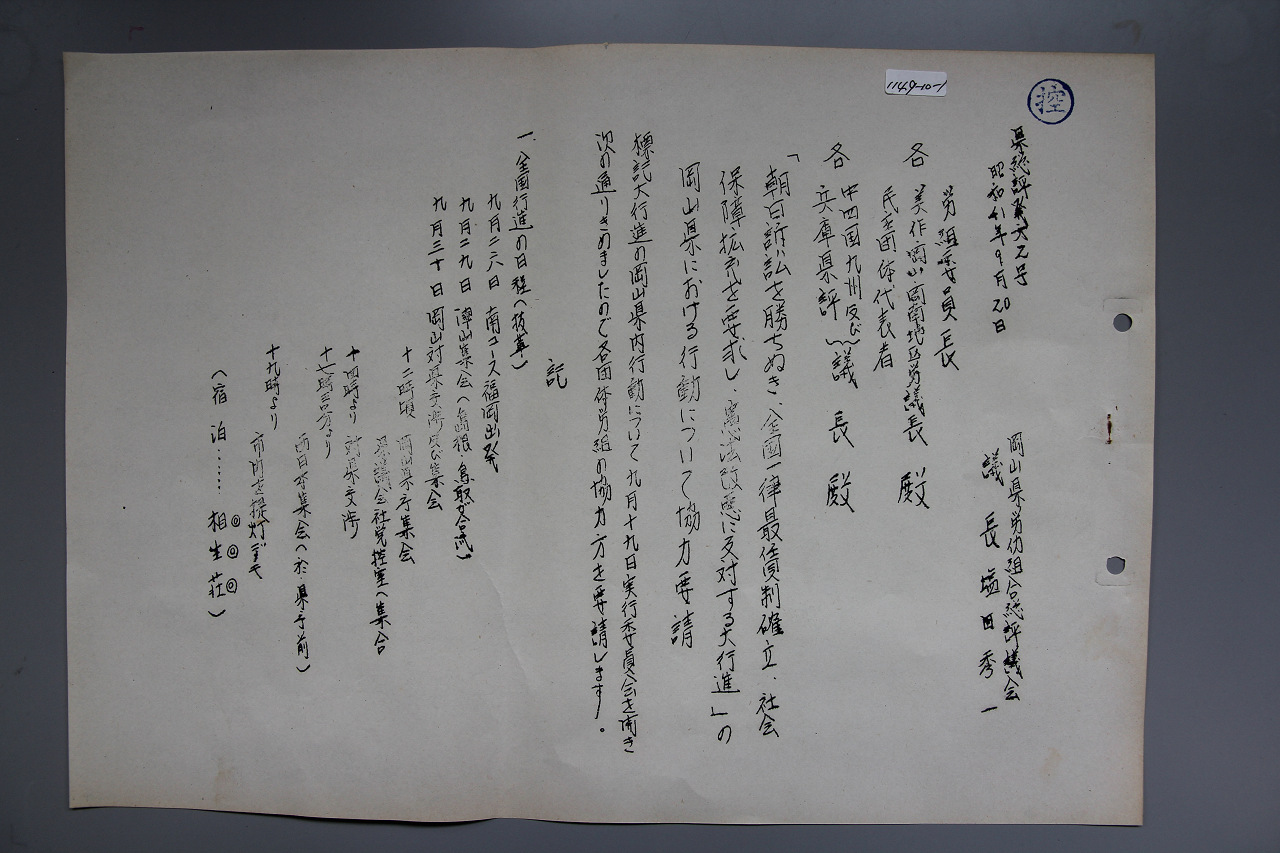 1149-10-1
控
県総評発六二号
昭和41年9月20日
岡山県労仂組合総評議会
議長 塩田秀一
労組委員長
各 美作岡山、岡南地区労議長 殿
民主団体代表者
各 中四国九州及び 議長殿
兵庫県評
「朝日訴訟を勝ちぬき、全国一律最賃制確立、社会
保障拡充を要求し、憲法改悪に反対する大行進」の
岡山県における行動について協力要請
標記大行進の岡山県内行動について九月十九日実行委員会を開き
次の通りきめましたので各団体労組の協力方を要請します。
記
一、全国行進の日程(抜萃)
九月二六日 南コース福岡出発
九月二九日 津山集会(島根、鳥取が合流)
九月三十日 岡山対県交渉及び集会
十二時頃 岡山県庁集会
県議会社党控室へ集合
十四時より 対県交渉
十七時三〇分より
西日本集会(於県庁前)
十九時より
市内を提灯デモ
(宿泊……相生荘)